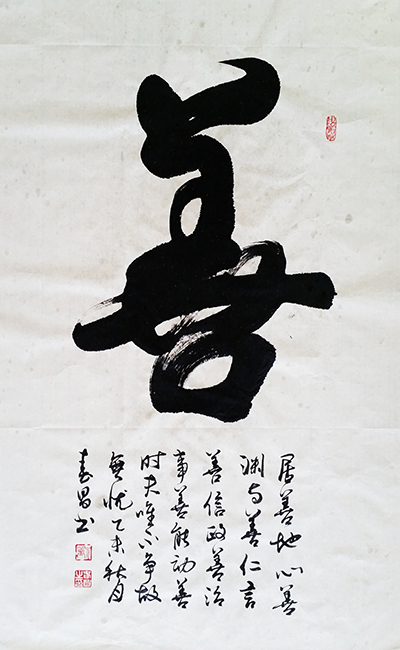 善
居善地心善
渊与善仁言
善信政善治
事善能动善
时夫唯不争故
無忧乙未秋月
昌书